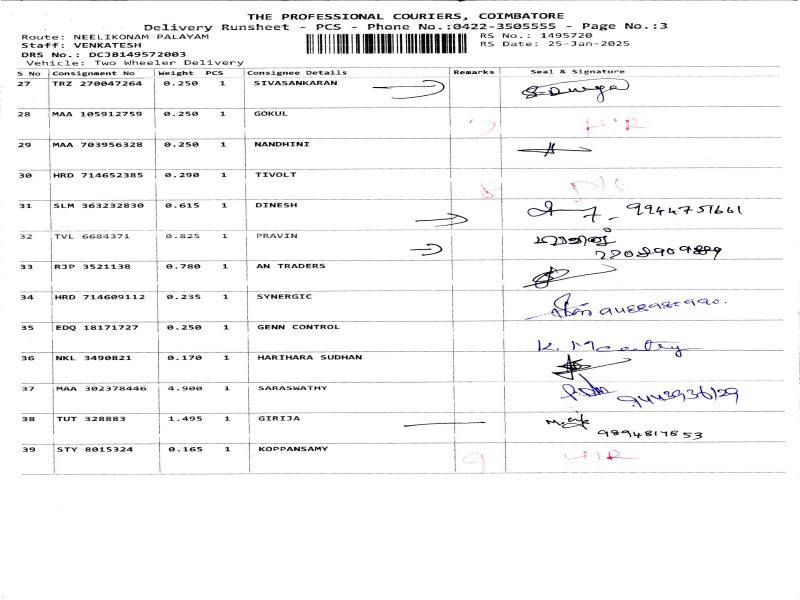 THE PROFESSIONAL COURIERS, COIMBATORE
Delivery Runsheet - PCS - Phone No.:0422-3505555 - Page No.:3
Route: NEELIKONAM PALAYAM RS No.: 1495720
Staff: VENKATESH RS Date: 25-Jan-2025
DRS No.: DCJB149572003
Vehicle: Two Wheeler Delivery
S No Consignment No Weight PCS Consignee Details Remarks Seal & Signature
27 TRZ 270047264 0.250 1 SIVASANKARAN S. Durga
28 MAA 105912759 0.250 1 GOKUL 7 HIR
29 MAA 703956328 0.250 1 NANDHINI
30 HRD 714652385 0.290 1 TIVOLT 8
31 SLM 363232830 0.615 1 DINESH 9944751661
32 TVL 6684371 0.825 1 PRAVIN
33 RJP 3521138 0.780 1 AN TRADERS
34 HRD 714609112 0.235 1 SYNERGIC
35 EDQ 18171727 0.250 1 GENN CONTROL K.
36 NKL 3490821 0.170 1 HARIHARA SUDHAN
37 MAA 302378446 4.900 1 SARASWATHY
38 TUT 328883 1.495 1 GIRIJA 9894817853
39 STY 8015324 0.165 1 KOPPANSAMY 9 HIR